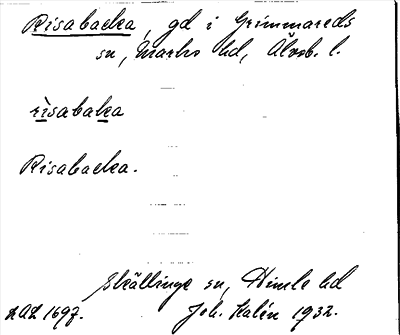 Risabacka, gd i Grimmareds
sn, Marks hd, Älvsb. l.
rìsabaka
Risabacka.
Skällinge sn, Himle hd
KAL 1697. Joh. Kalén 1932.